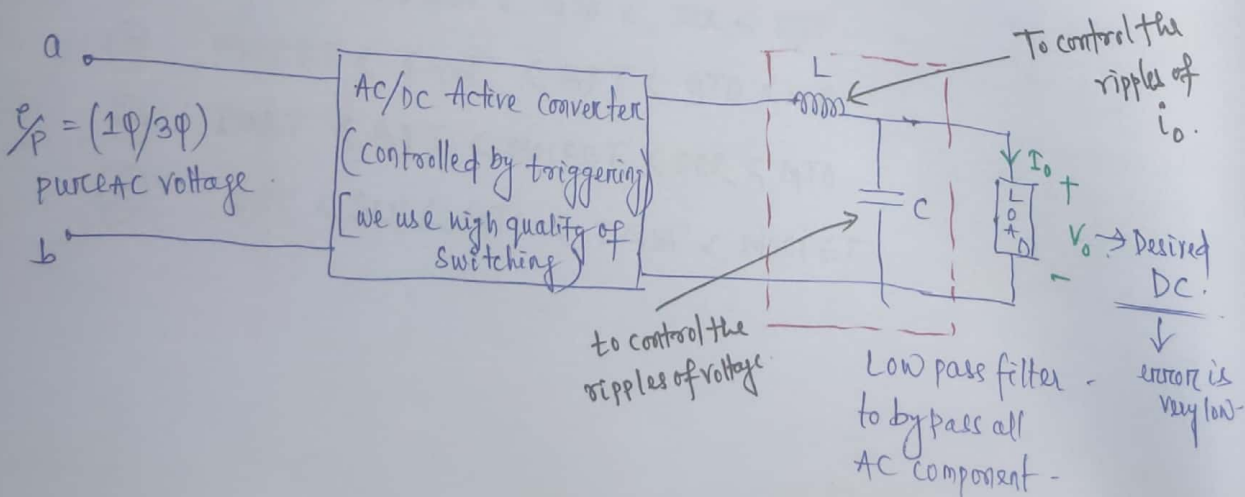 a
i/p = (1φ/3φ)
pure AC voltage.
b
AC/DC Active converter
(controlled by triggering)
[we use high quality of
switching]
L
To control the
ripples of
i₀.
C
I₀
+
LOAD
V₀ → Desired
-
DC.
↓
error is
very low-
to control the
ripples of voltage
Low pass filter -
to bypass all
AC component -